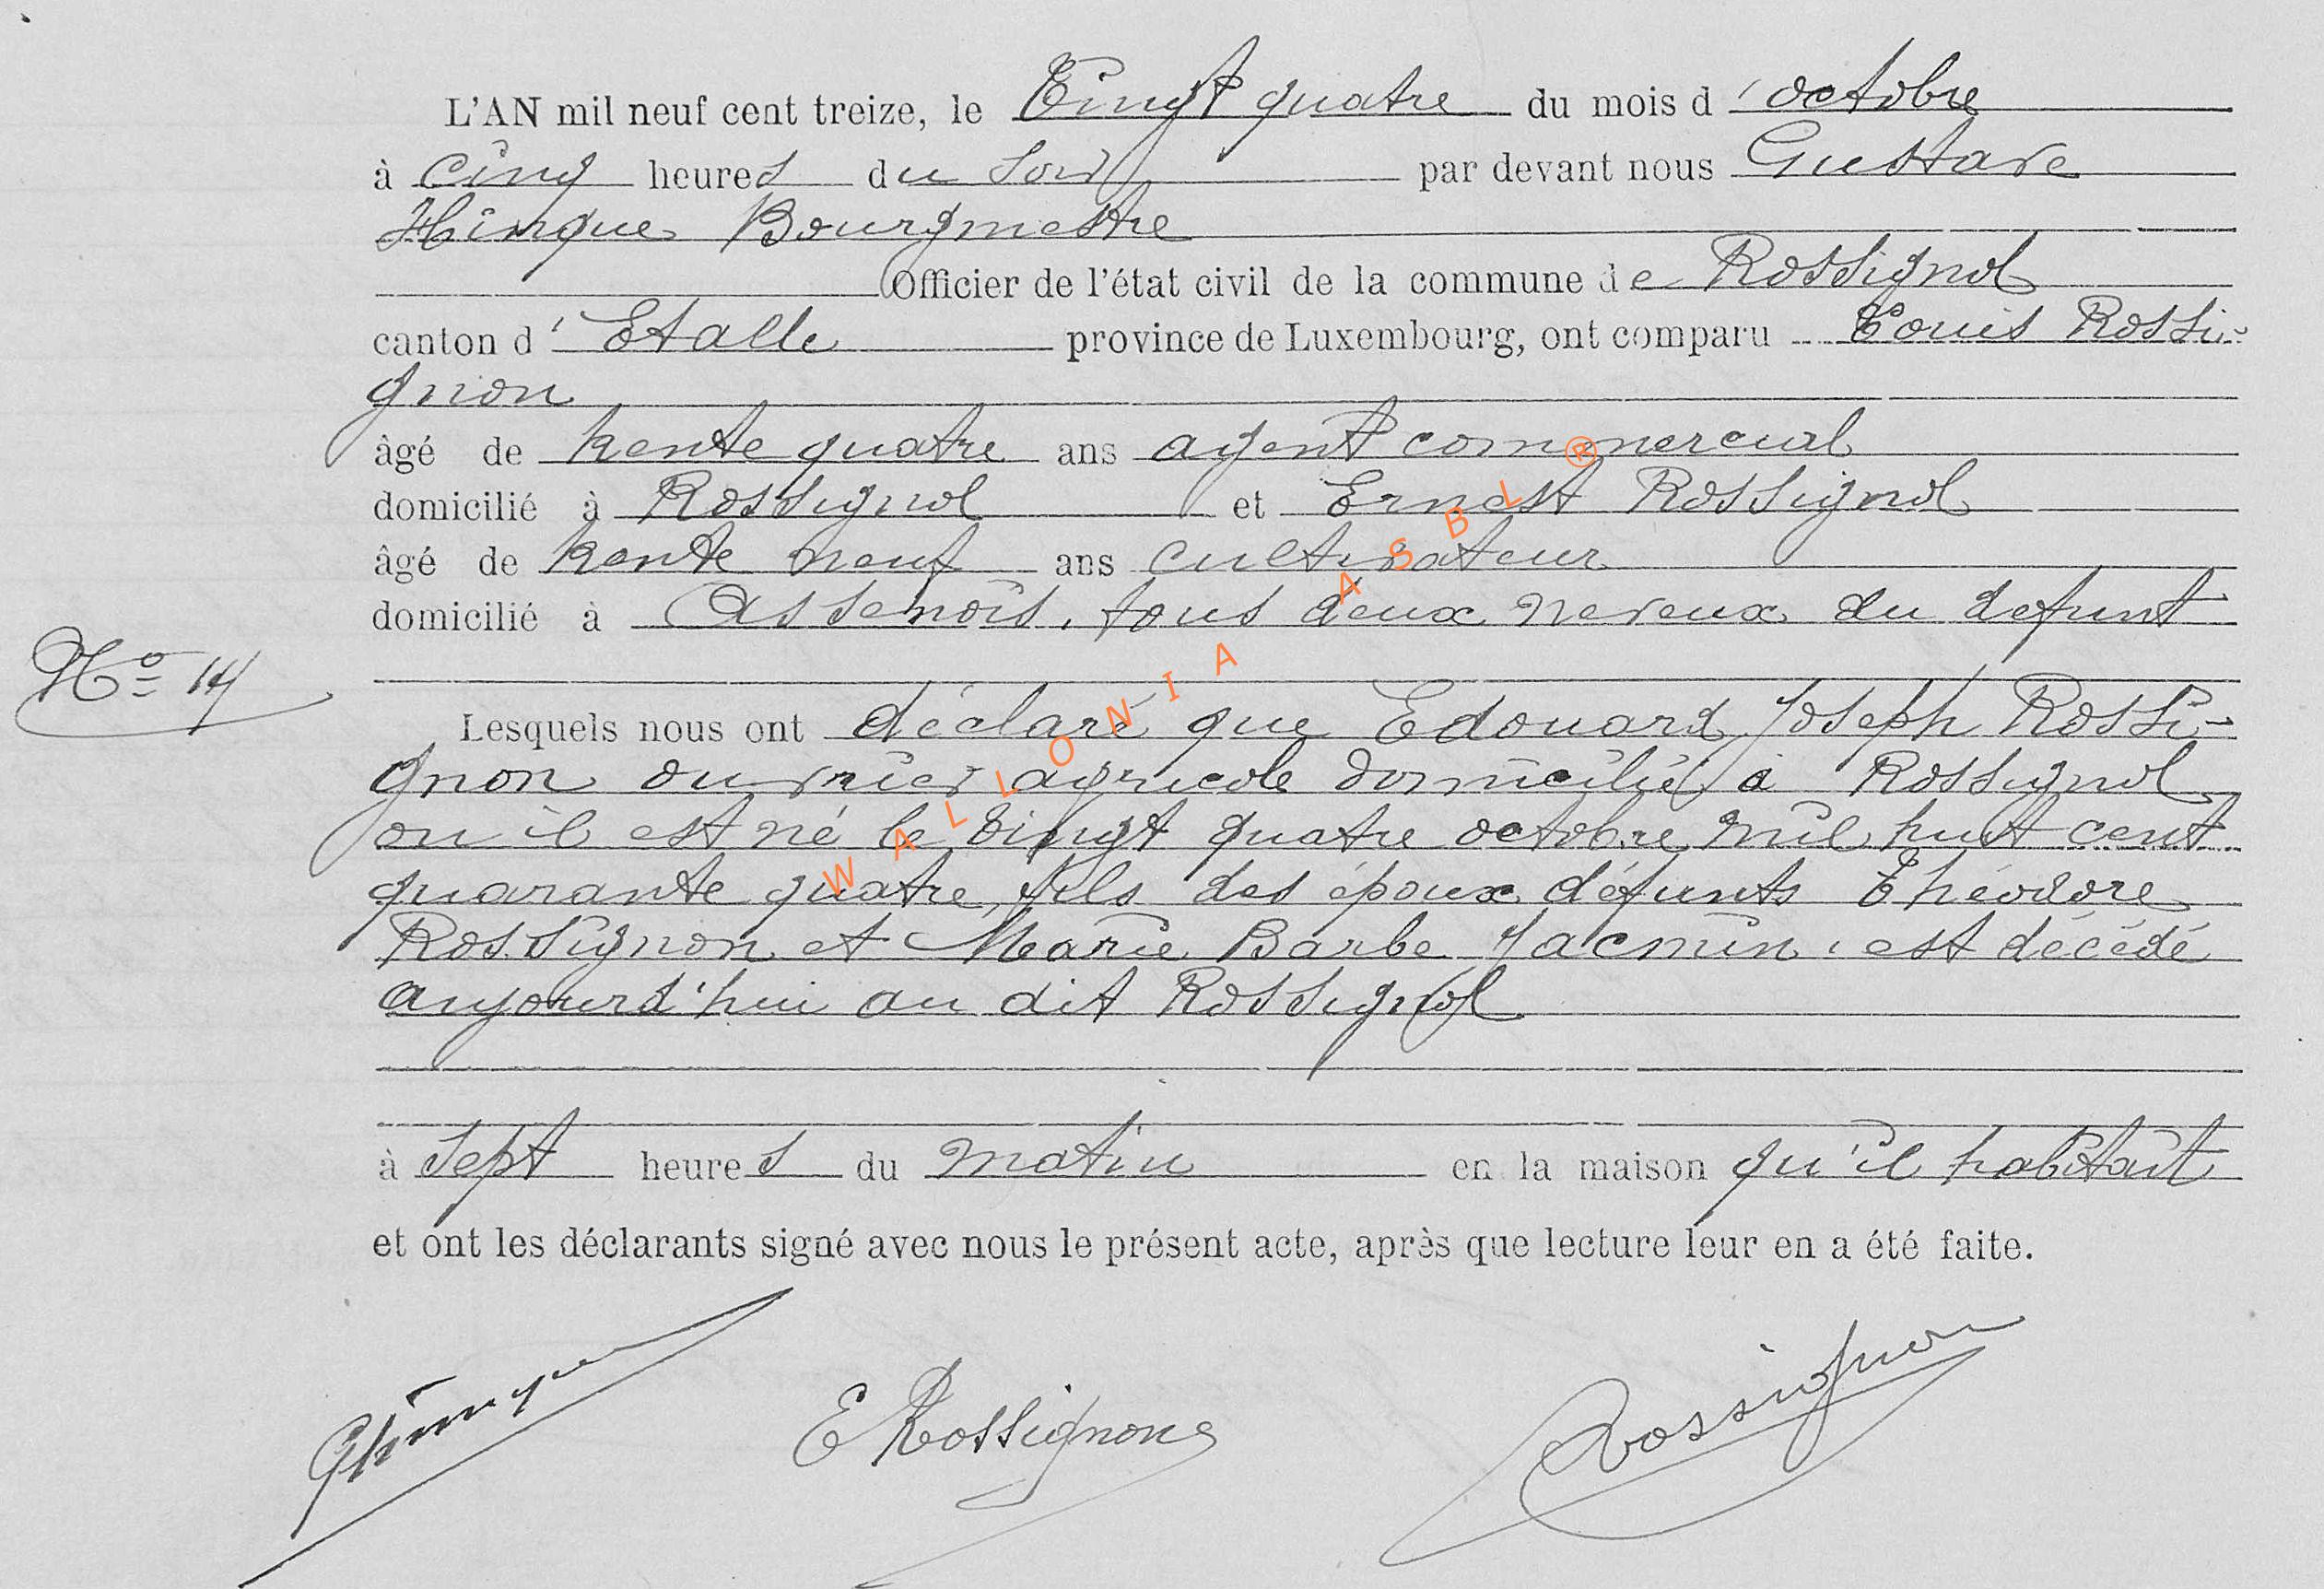 L'AN mil neuf cent treize, le Vingt quatre du mois d'octobre
à cinq heures du soir par devant nous Gustave
Hinque Bourgmestre
Officier de l'état civil de la commune de Rossignol
canton d'Etalle province de Luxembourg, ont comparu Louis Rossi-
gnon
âgé de trente quatre ans agent commercial
domicilié à Rossignol et Ernest Rossignol
âgé de trente neuf ans cultivateur
domicilié à Assenois, tous deux neveux du defunt
No 14
Lesquels nous ont déclaré que Edouard Joseph Rossi-
gnon ouvrier agricole domicilié à Rossignol
ou il est né le vingt quatre octobre mil huit cent
quarante quatre, fils des époux défunts Théodore
Rossignon et Marie Barbe Jacmin, est décédé
aujourd'hui au dit Rossignol
à sept heures du matin en la maison qu'il habitait
et ont les déclarants signé avec nous le présent acte, après que lecture leur en a été faite.
GHinque E Rossignon Rossignon
WALLONIA ASBL ®